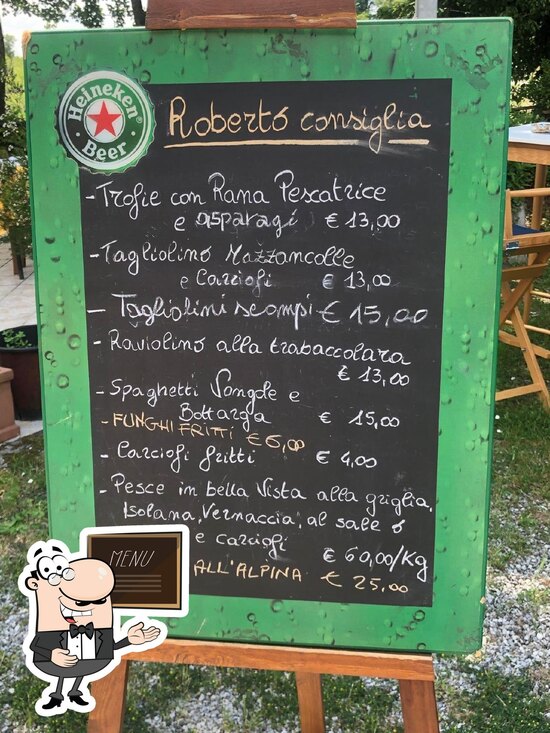 Heineken
Beer
Roberto consiglia
- Trofie con Rana Pescatrice
e asparagi € 13,00
- Tagliolino Mazzancolle
e Carciofi € 13,00
- Tagliolini scampi € 15,00
- Raviolino alla trabaccolara
€ 13,00
- Spaghetti Vongole e
Bottarga € 15,00
- FUNGHI FRITTI € 6,00
- Carciofi fritti € 4,00
- Pesce in bella Vista alla griglia,
Isolana, Vernaccia, al sale o
e carciofi € 60,00/Kg
ALL'ALPINA € 25,00
MENU